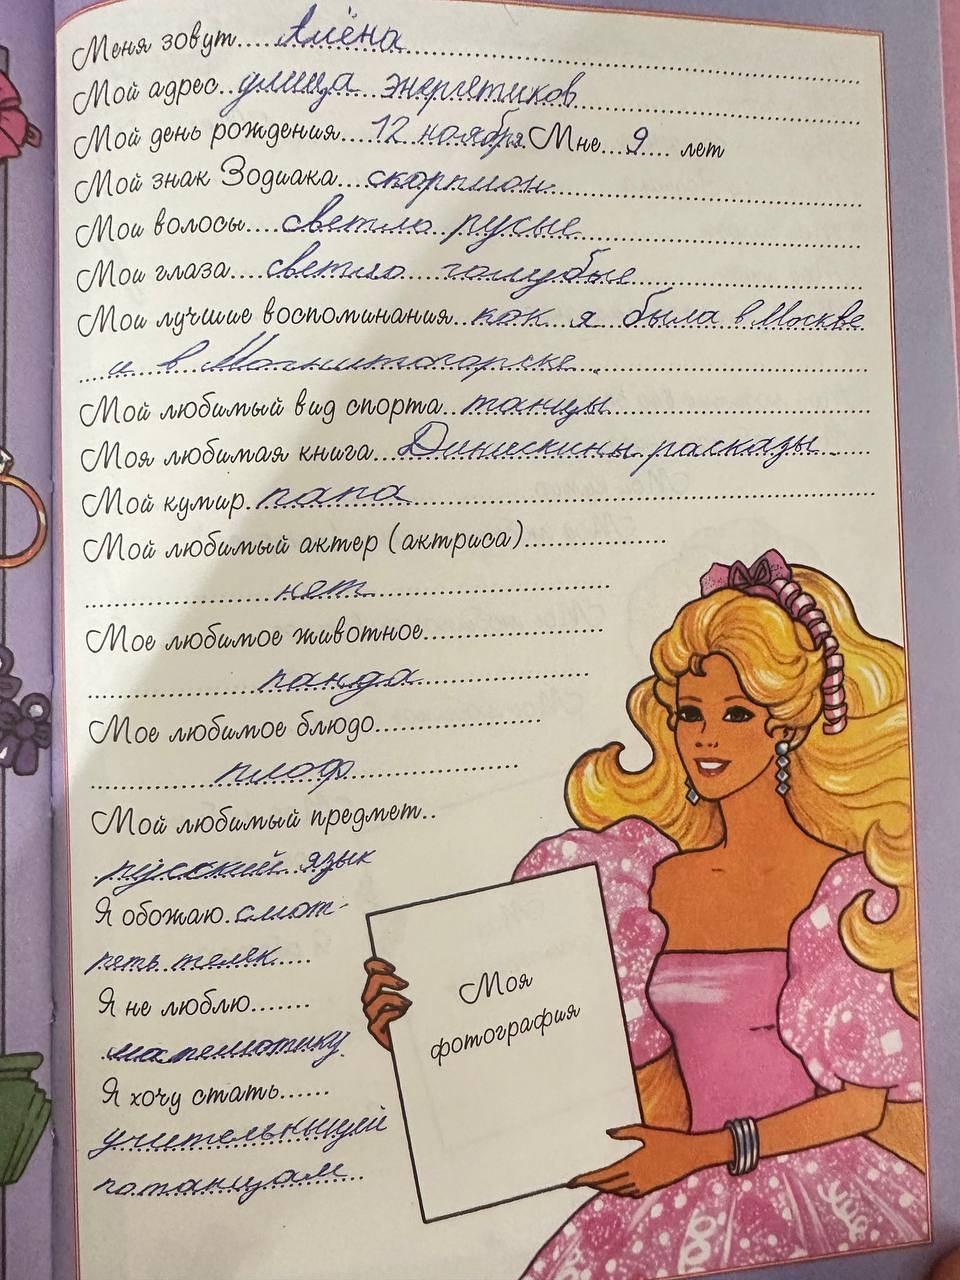 Меня зовут.... Алёна
Мой адрес.. улица энергетиков
Мой день рождения.... 12 ноября. Мне... 9.... лет
Мой знак Зодиака.... скорпион
Мои волосы.... светло русые
Мои глаза.... светло голубые
Мои лучшие воспоминания.. как я была в Москве
и в Магнитогорске
Мой любимый вид спорта.. танцы
Моя любимая книга... Динискины расказы
Мой кумир. папа
Мой любимый актер (актриса)
нет
Мое любимое животное
панда
Мое любимое блюдо
плов
Мой любимый предмет..
русский язык
Я обожаю. смот-
реть телек
Я не люблю.......
математику
Я хочу стать......
по танцам
Моя
фотография